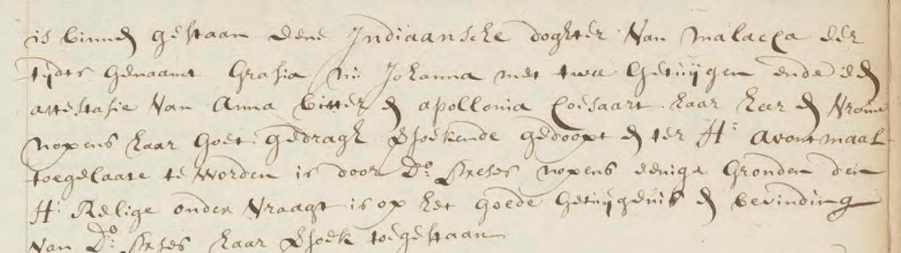 is binnen gestaan eene Indiaansche doghter van malacca eer
tijdts genaamt Grasia nu Johanna met twee getuijgen ende een
attestasie van Anna bitter en apollonia Coesaart haar heer en vrouw
nopens haar goet gedragh versoekende gedoopt en ter H: avontmaal
toegelaate te worden is door Do: Preses nopens eenige gronden der
H: Relige ondervraagt is op het goede getuijgenis en bevinding
van Do: Preses haar versoek toegestaan